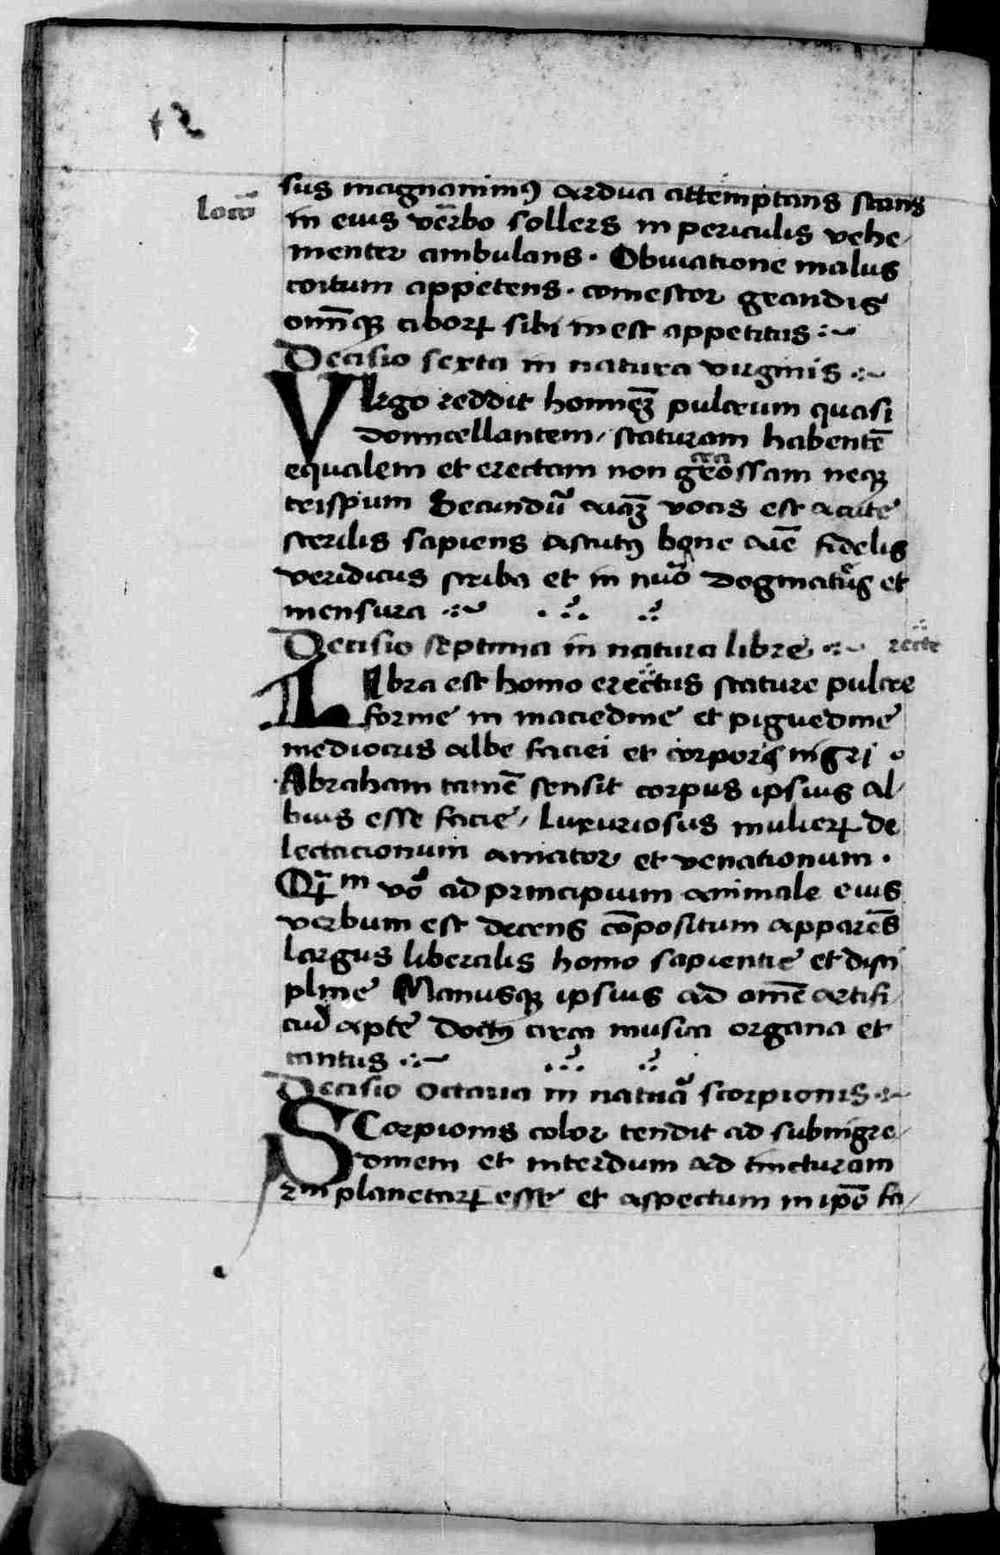 12
sus magnanimꝰ ardua attemptans stans
loco᷒
in eius v̄erbo sollers in periculis vehe/
menter ambulans. Obuiatione malus
coitum appetens. comestor grandis
om̄iqꝫ ciborꝝ sibi inest appetitus :~
Decisio sexta in natura virginis :~
VIrgo reddit hominēꝫ pulcrum quasi
domicellantem / staturam habentē
equalem et erectam non grossam neqꝫ
crispum Secundū aūꝫ vocis est acute
sterilis sapiens astutꝰ bone aīe fidelis
veridicus scriba et in nūo dogmatūs et
mensura :~
Decisio septima in natura libre :~ recte
LIbra est homo erectus stature pulcre
forme in maciedine et piguedine
mediocris albe faciei et corporis nigri
Abraham tamē sensit corpus ipsius al/
bius esse facie / luxuriosus mulierꝝ de
lectacionum amator et venationum.
Qꝝm vō ad principium animale eius
verbum est decens cōpositum apparēs
largus liberalis homo sapientie et disci
pline Manusqꝫ ipsius ad omē artifi/
ciū apte doctꝰ circa musica organa et
cantus :~
Decisio octaua in natūa scorpionis :~
SCorpionis color tendit ad subnigre/
dinem et interdum ad tincturam
rm planetarꝝ esse et aspectum in ip̄o fa/